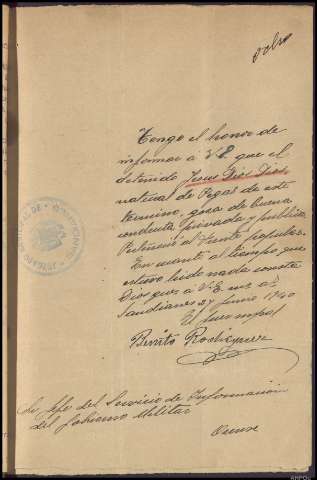 Tengo el honor de
informar a V.E. que el
detenido Jesus
natural de Pegas de este
termino, goza de buena
conducta privada y publica.
Pertenecio al Frente popular.
En cuanto al tiempo que
estuvo huido nada consta
Dios gue a V.E. ms as
Sandianes 27 Junio 1940
El
Benito Rodriguez
Sr Jefe del Servicio de Informacion
del Gobierno Militar
Orense